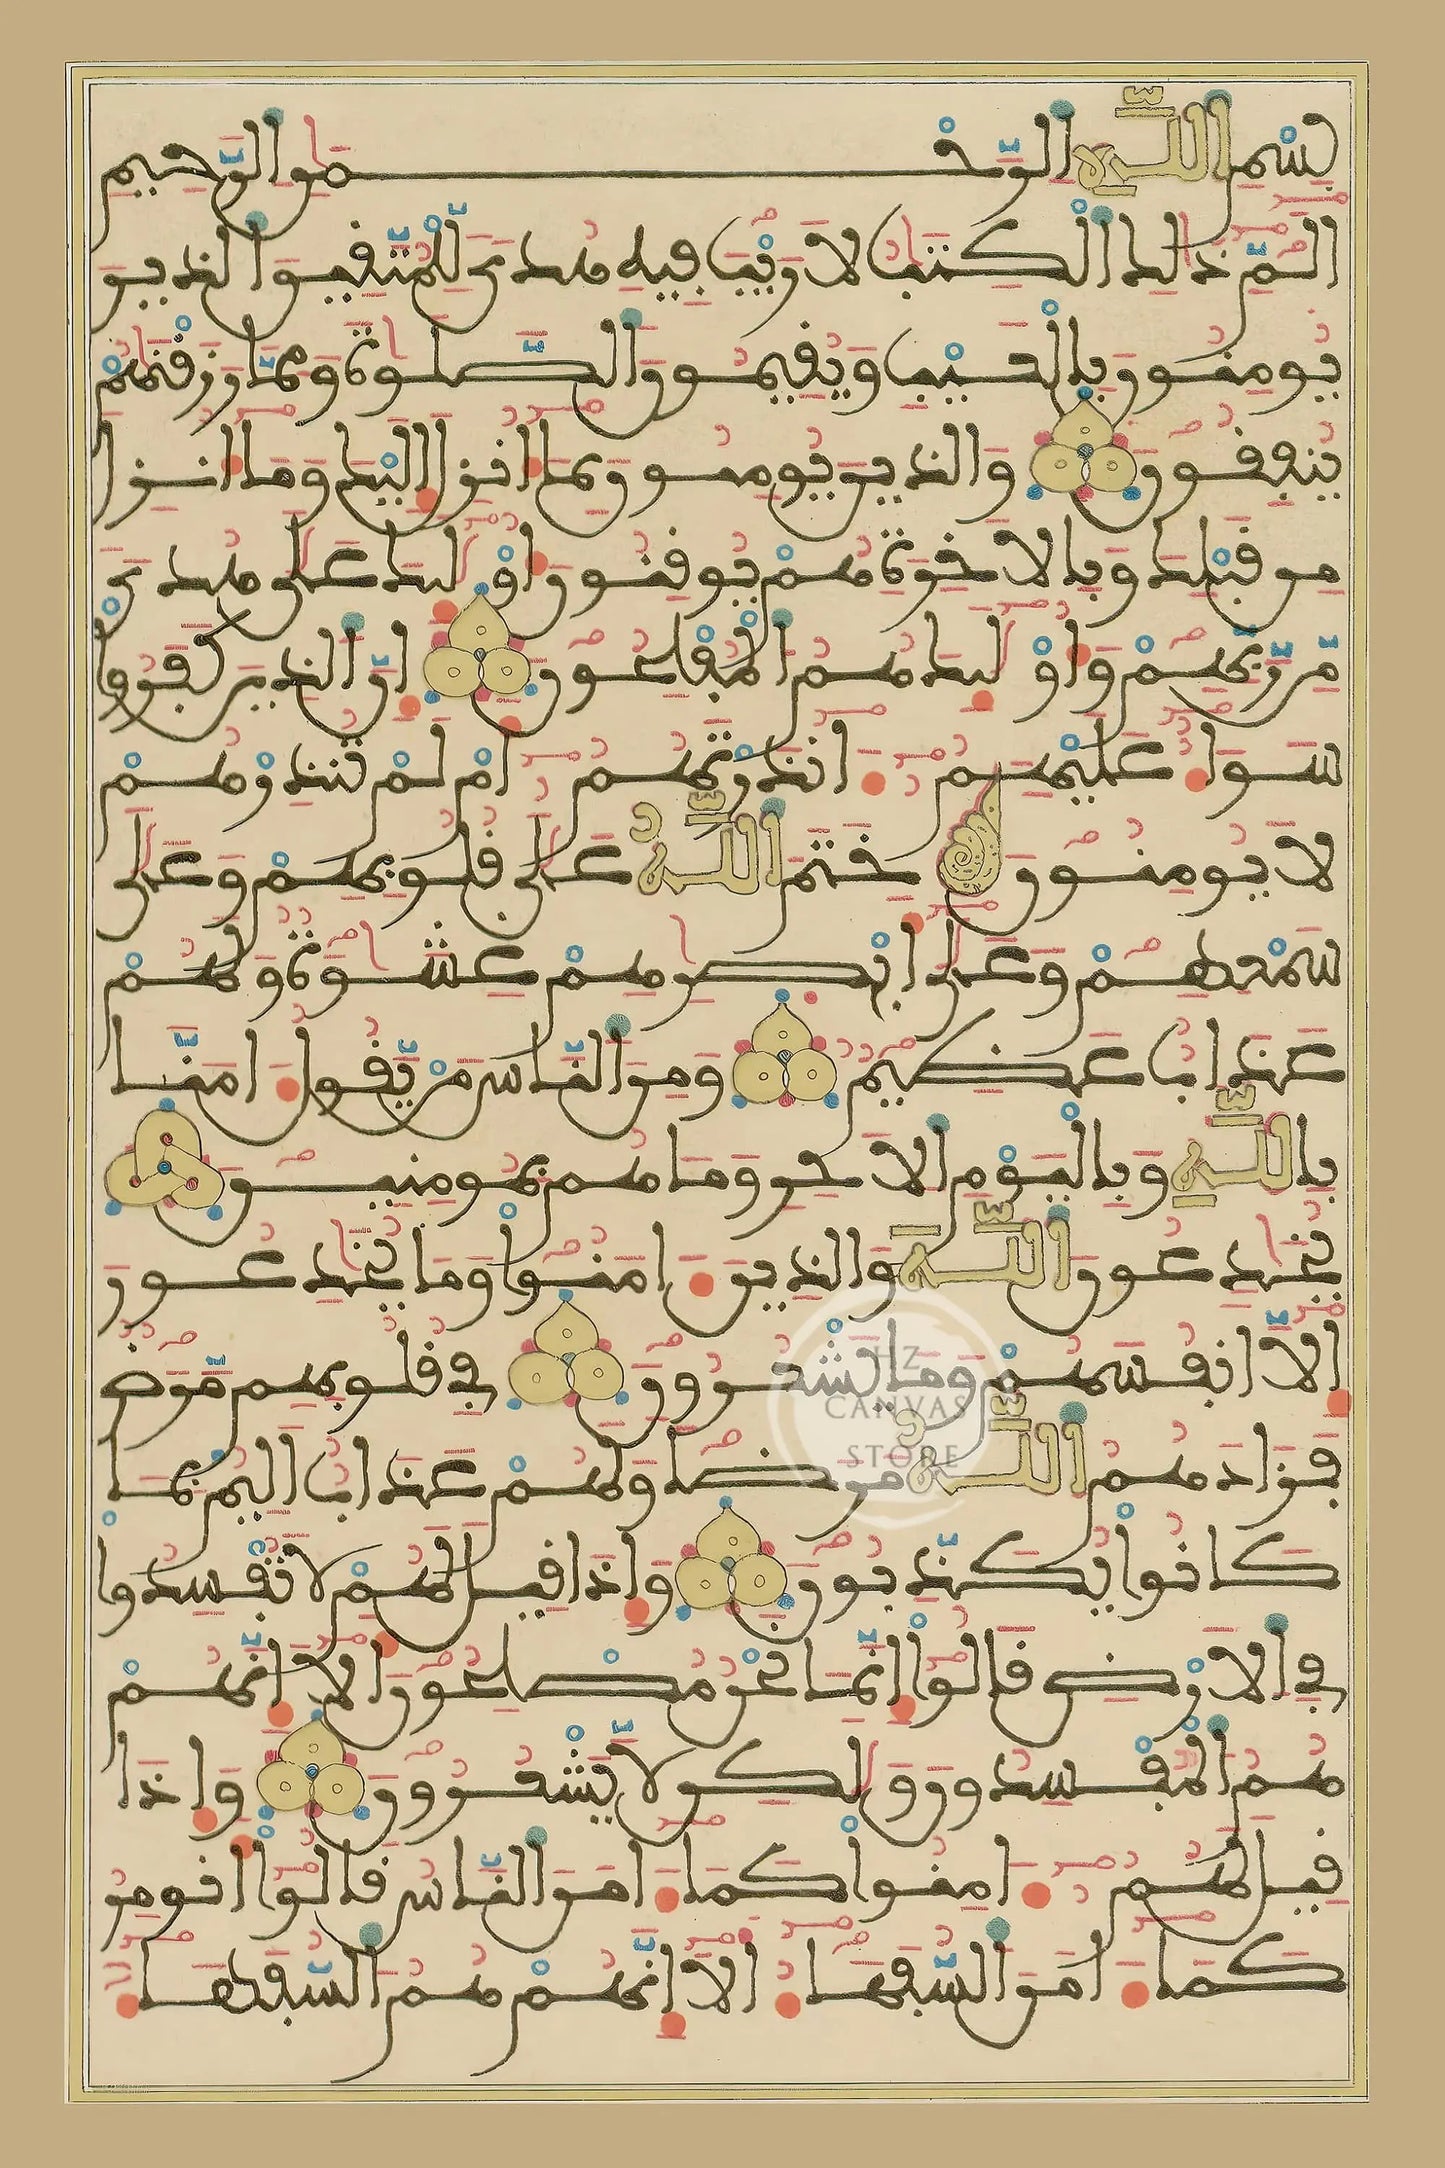 بسم الله الرحمن الرحيم
الم ذلك الكتب لا ريب فيه هدى للمتقين الذين
يومنون بالغيب ويقيمون الصلوة ومما رزقنهم
ينفقون والذين يومنون بما انزل اليك وما انزل
من قبلك وبالاخرة هم يوقنون اولئك على هدى
من ربهم واولئك هم المفلحون ان الذين كفروا
سواء عليهم ءانذرتهم ام لم تنذرهم
لا يومنون ختم الله على قلوبهم وعلى
سمعهم وعلى ابصرهم غشوة ولهم
عذاب عظيم ومن الناس من يقول امنا
بالله وباليوم الاخر وما هم بمومنين
يخدعون الله والذين امنوا وما يخدعون
الا انفسهم وما يشعرون في قلوبهم مرض
فزادهم الله مرضا ولهم عذاب اليم بما
كانوا يكذبون واذا قيل لهم لا تفسدوا
في الارض قالوا انما نحن مصلحون الا انهم
هم المفسدون ولكن لا يشعرون واذا
قيل لهم امنوا كما امن الناس قالوا انومن
كما امن السفهاء الا انهم هم السفهاء
HZ
CANVAS
STORE